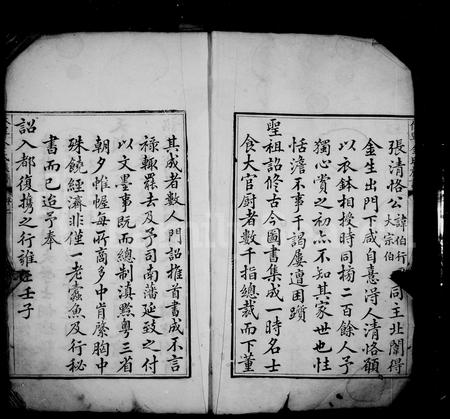 張清恪公諱伯行大宗伯同主北闈得
金生出門下咸自憙得人清恪顧
以衣鉢相授時同榜二百餘人予
獨心賞之初亦不知其家世也性
恬澹不事干謁屢遭困躓
聖祖詔修古今圖書集成一時名士
食大官厨者數千指總裁而下董
其成者數人門詔推首書成不言
祿輒罷去及予司南藩延致之付
以文墨事既而總制滇黔粤三省
朝夕帷幄每所商多中肯綮胸中
殊饒經濟非僅一老蠹魚及行秘
書而已迨予奉
詔入都復携之行雍正壬子